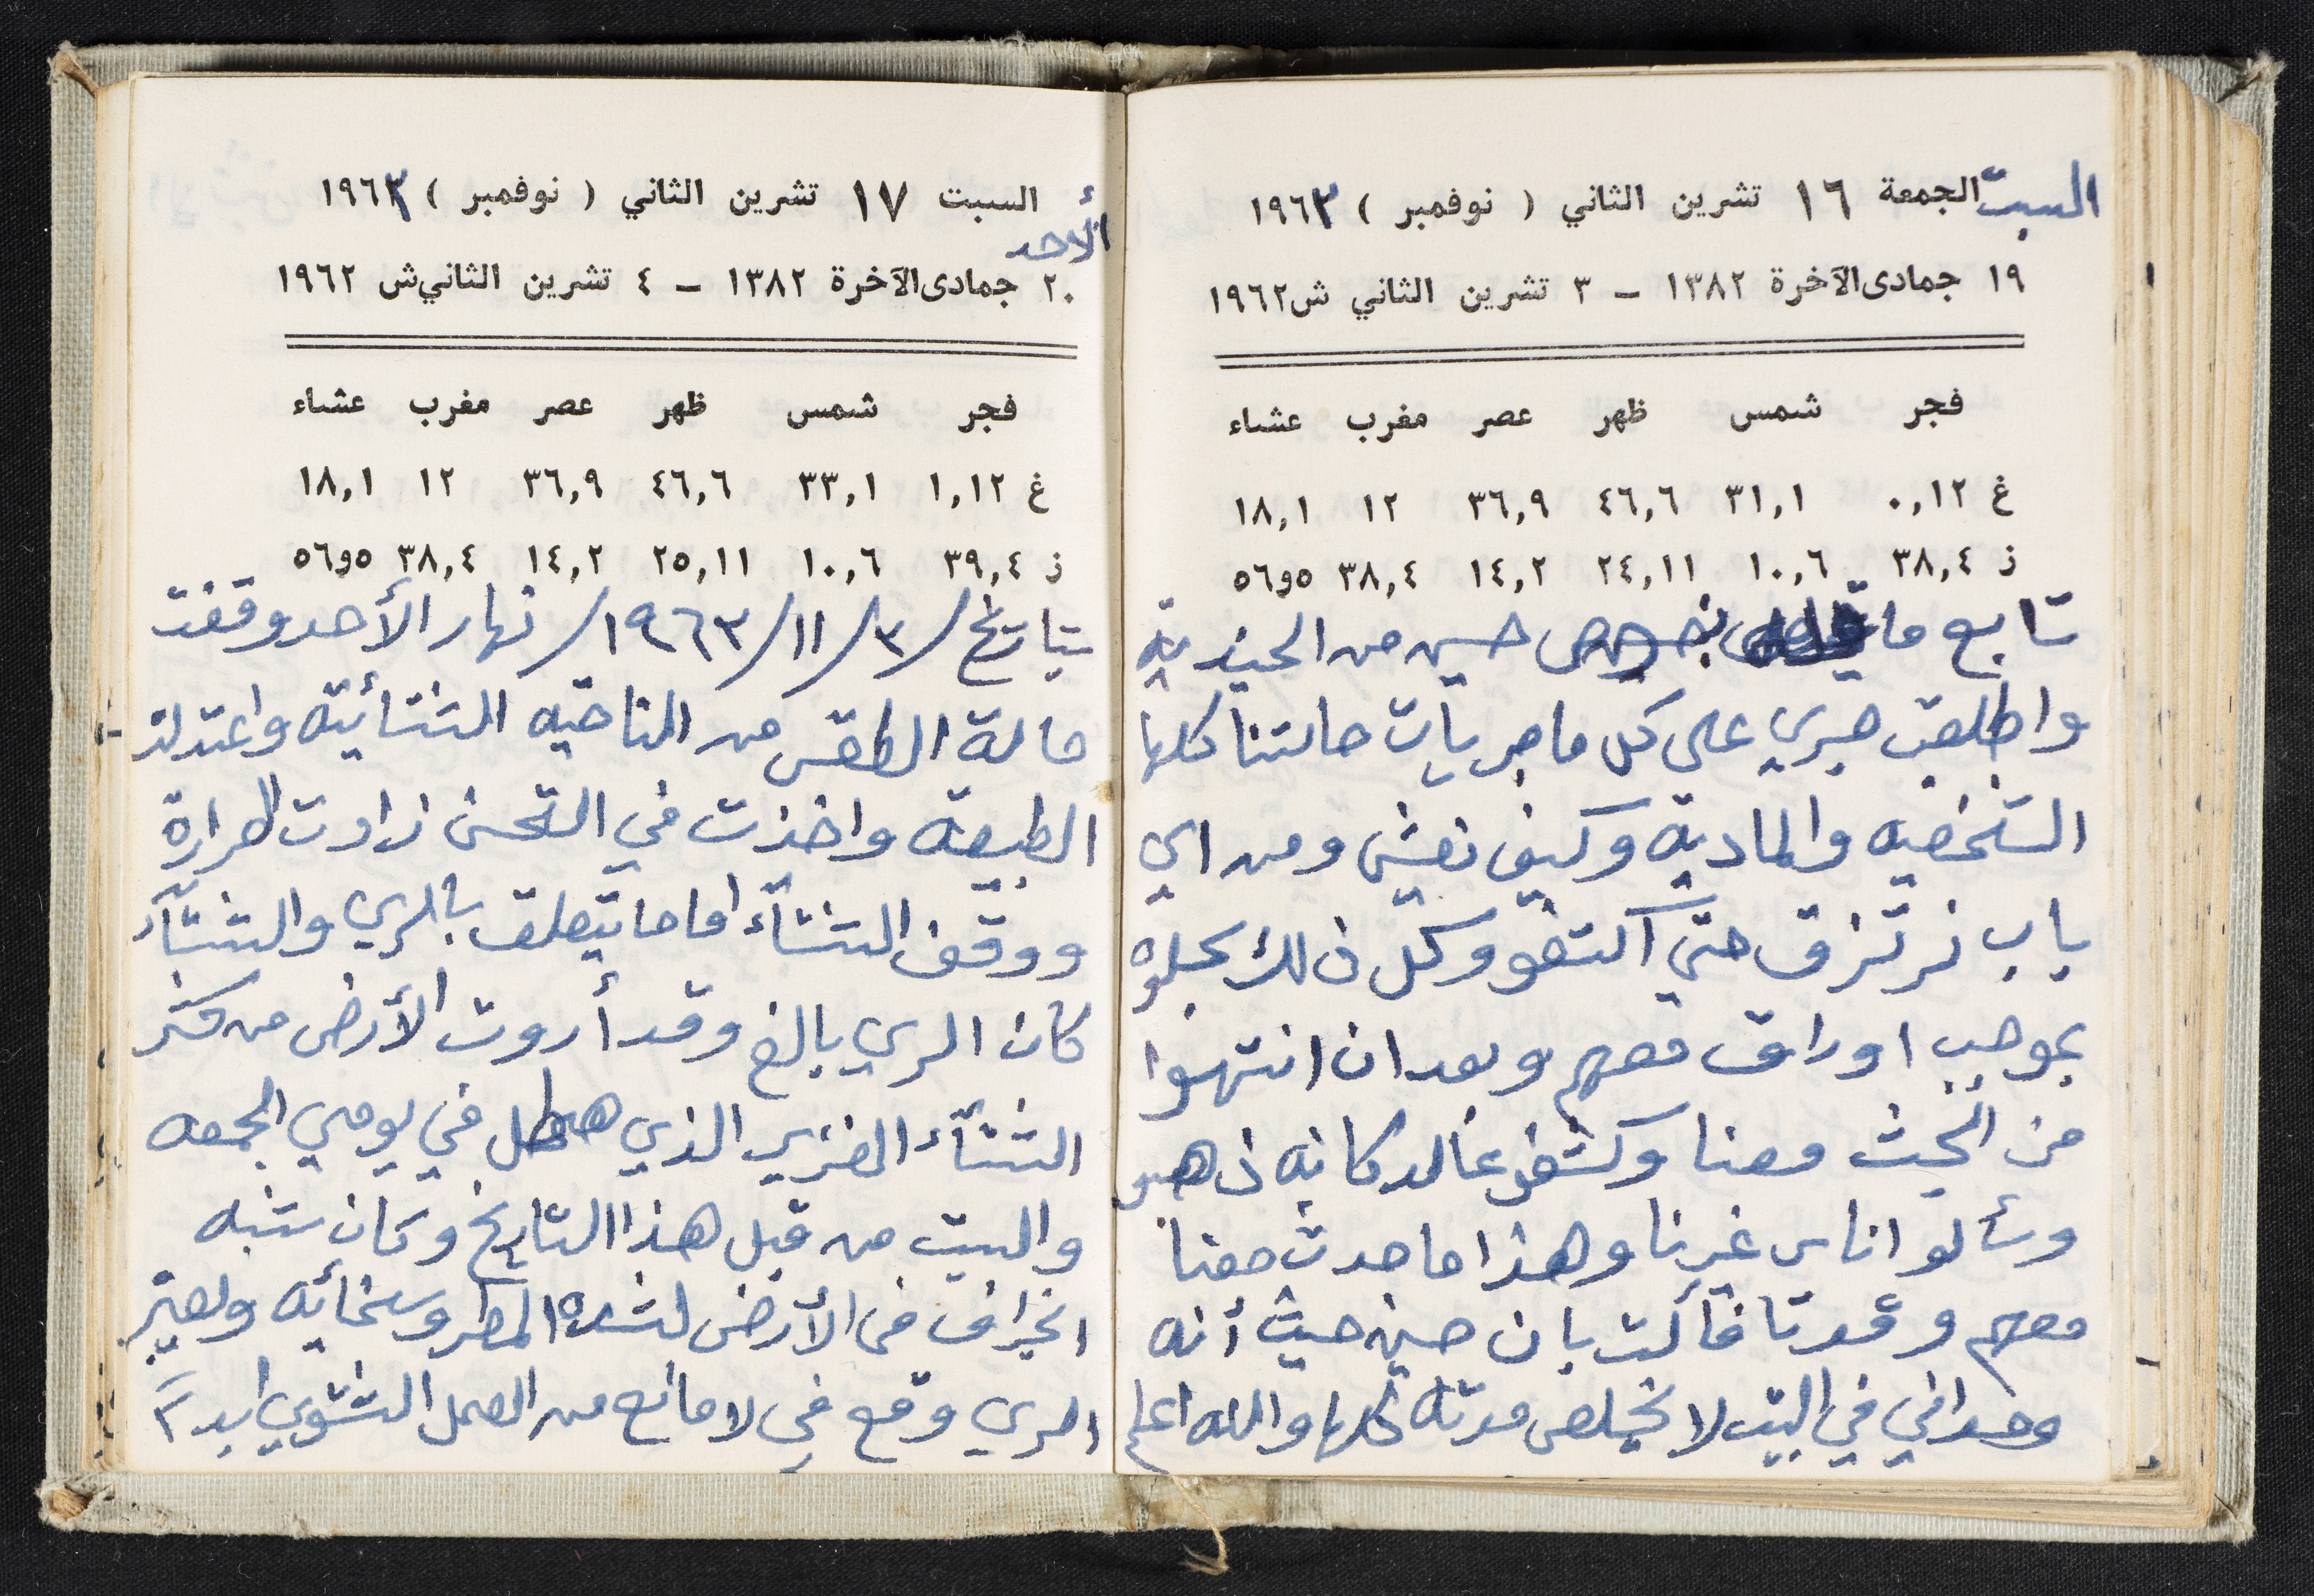 السبت الجمعة ١٦ تشرين الثاني ( نوفمبر ) ١٩٦٣
١٩ جمادى الآخرة ١٣٨٢ – ٣ تشرين الثاني ش ١٩٦٢
فجر شمس ظهر عصر مغرب عشاء
غ ٠,١٢ ٣١,١ ٤٦,٦ ٣٦,٩ ١٢ ١٨,١
ز ٣٨,٤ ١٠,٦ ٢٤,١١ ١٤,٢ ٣٨,٤ ٥٦و٥
تابع ما قبله بخصوص حسين من الجنديه
واطلعت صبري على كل ما جريات حالتنا كلها
الشخصيه والماديه وكيف نعيش ومن اي
باب نرتزق حتى اكتفو وكل ذلك سجلوه
بموجب اوراق معهم وبعد ان انتهوا
من البحث معنا وكشفو عالدكانه ذهبو
وسألو اناس غيرنا وهذا ما حدث معنا
معهم وعودتا فأكدت بان حسين حيث أنه
وحداني في البيت لا يخلص مدته كلها والله اعلم
السبت ١٧ تشرين الثاني ( نوفمبر ) ١٩٦٣
الأحد
٢٠ جمادى الآخرة ١٣٨٢ – ٤ تشرين الثاني ش ١٩٦٢
فجر شمس ظهر عصر مغرب عشاء
غ ١,١٢ ٣٣,١ ٤٦,٦ ٣٦,٩ ١٢ ١٨,١
ز ٣٩,٤ ١٠,٦ ٢٥,١١ ١٤,٢ ٣٨,٤ ٥٦و٥
بتاريخ /٣/١١/١٩٦٣/ نهار الأحد وقفت
حالة الطقس من الناحيه الشتائيه واعتدلت
الطبيعه واخذت في التحسن زادت الحرارة
ووقف الشتآء اما ما يتعلق بالري والشتآء
كان الري بالغ وقد أروت الأرض من كثر
الشتآء الغزير الذي هطل في يومي الجمعه
والسبت من قبل هذا التاريخ وكان شبه
انجراف في الأرض لشده المطر وسخائه ويعتبر
الري وقع في لا مانع من العمل الشتوي ابداً